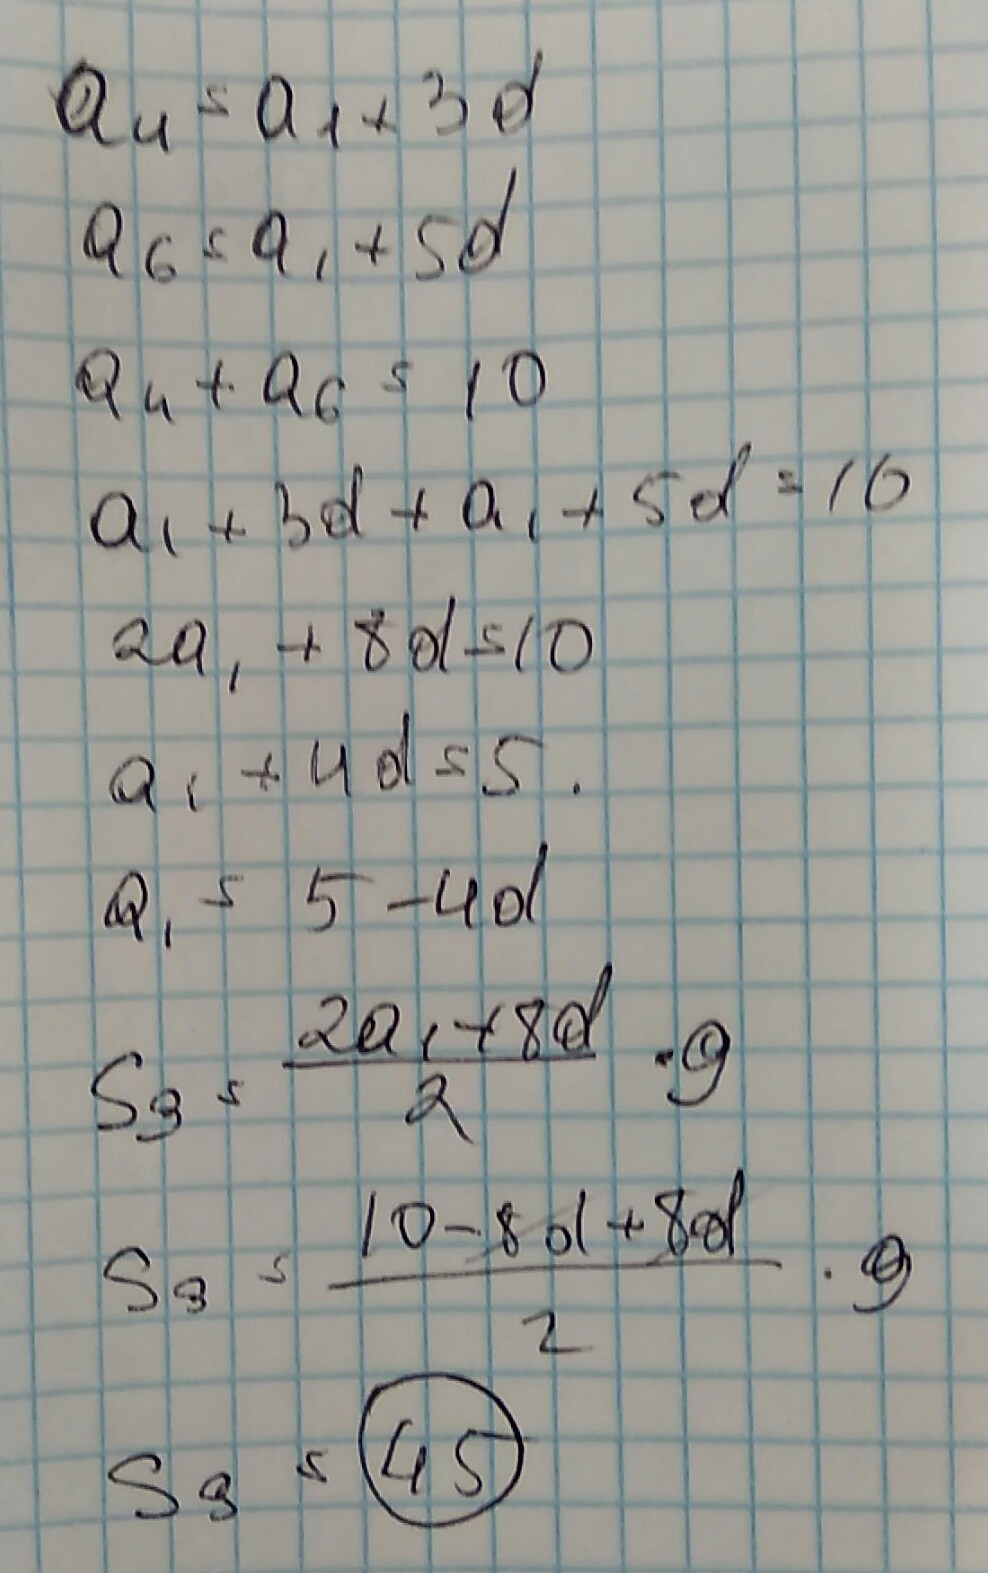 a₄ = a₁ + 3d
a₆ = a₁ + 5d
a₄ + a₆ = 10
a₁ + 3d + a₁ + 5d = 10
2a₁ + 8d = 10
a₁ + 4d = 5.
a₁ = 5 - 4d
S₉ = (2a₁ + 8d)/2 · 9
S₉ = (10 - 8d + 8d)/2 · 9
S₉ = 45